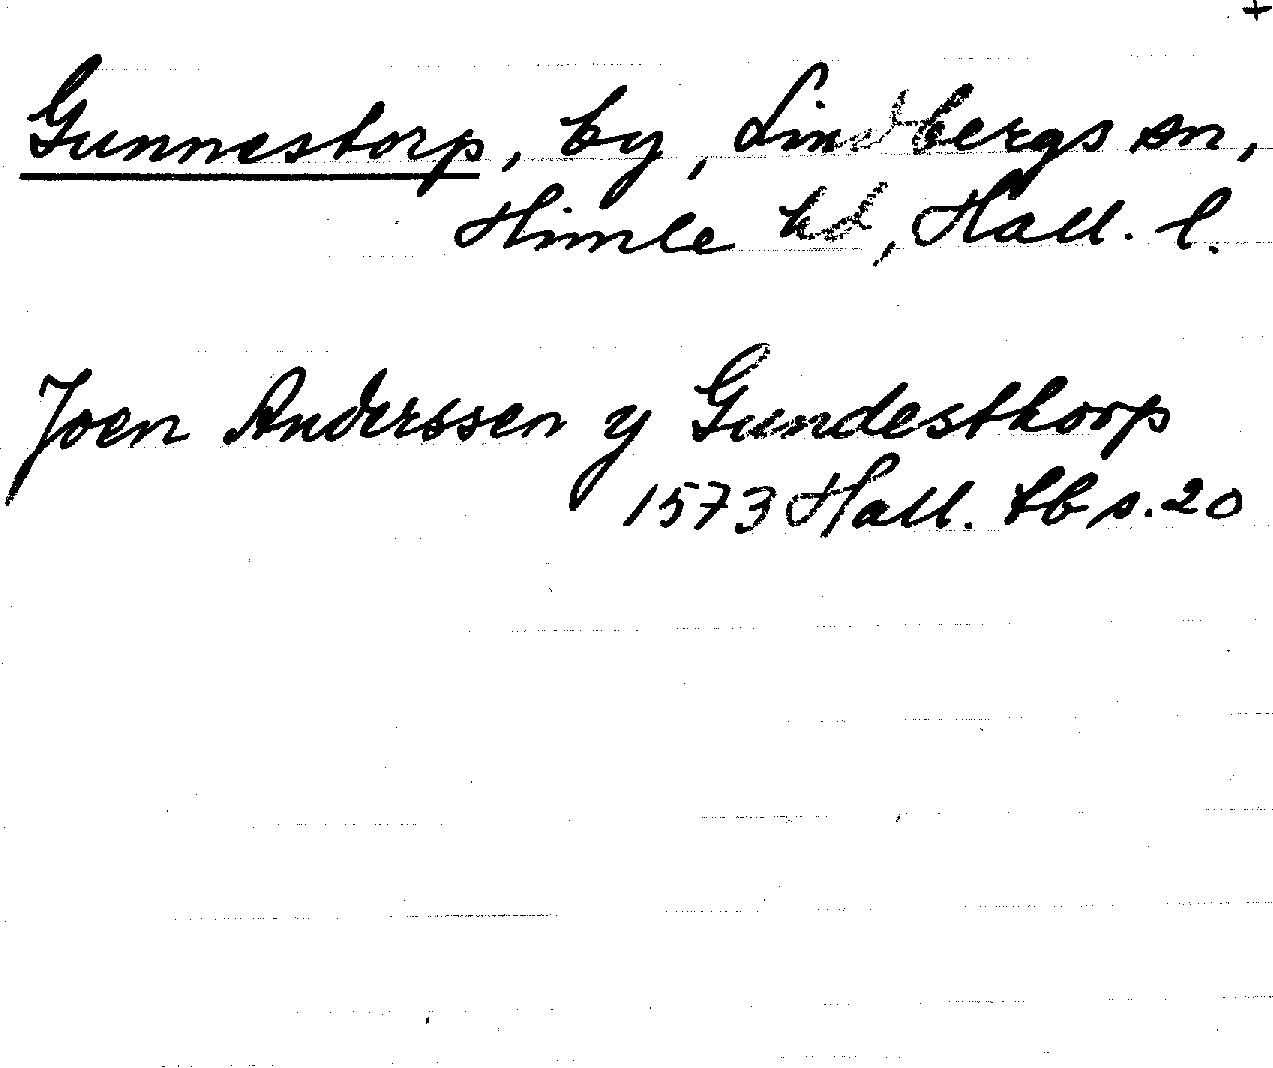 +
Gunnestorp, by, Lindbergs sn,
Himle hd, Hall. l.
Joen Anderssen y Gundesthorp
1573 Hall. tb s. 20